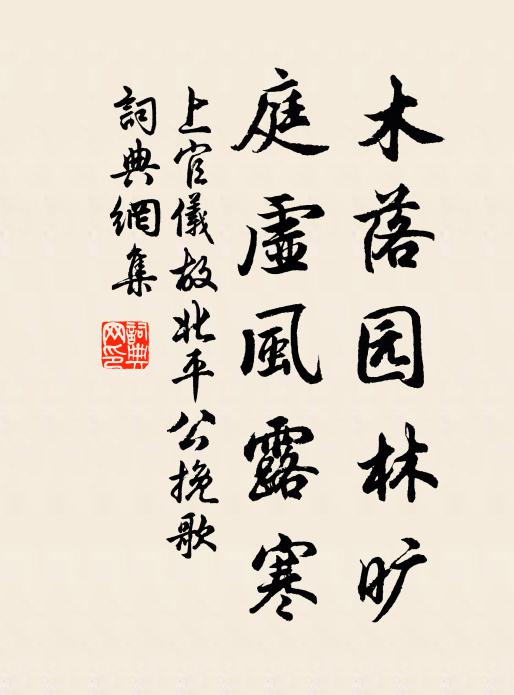 木落园林旷
庭虚風露寒
上官儀故北平公挽歌
詞典網集
詞典网印